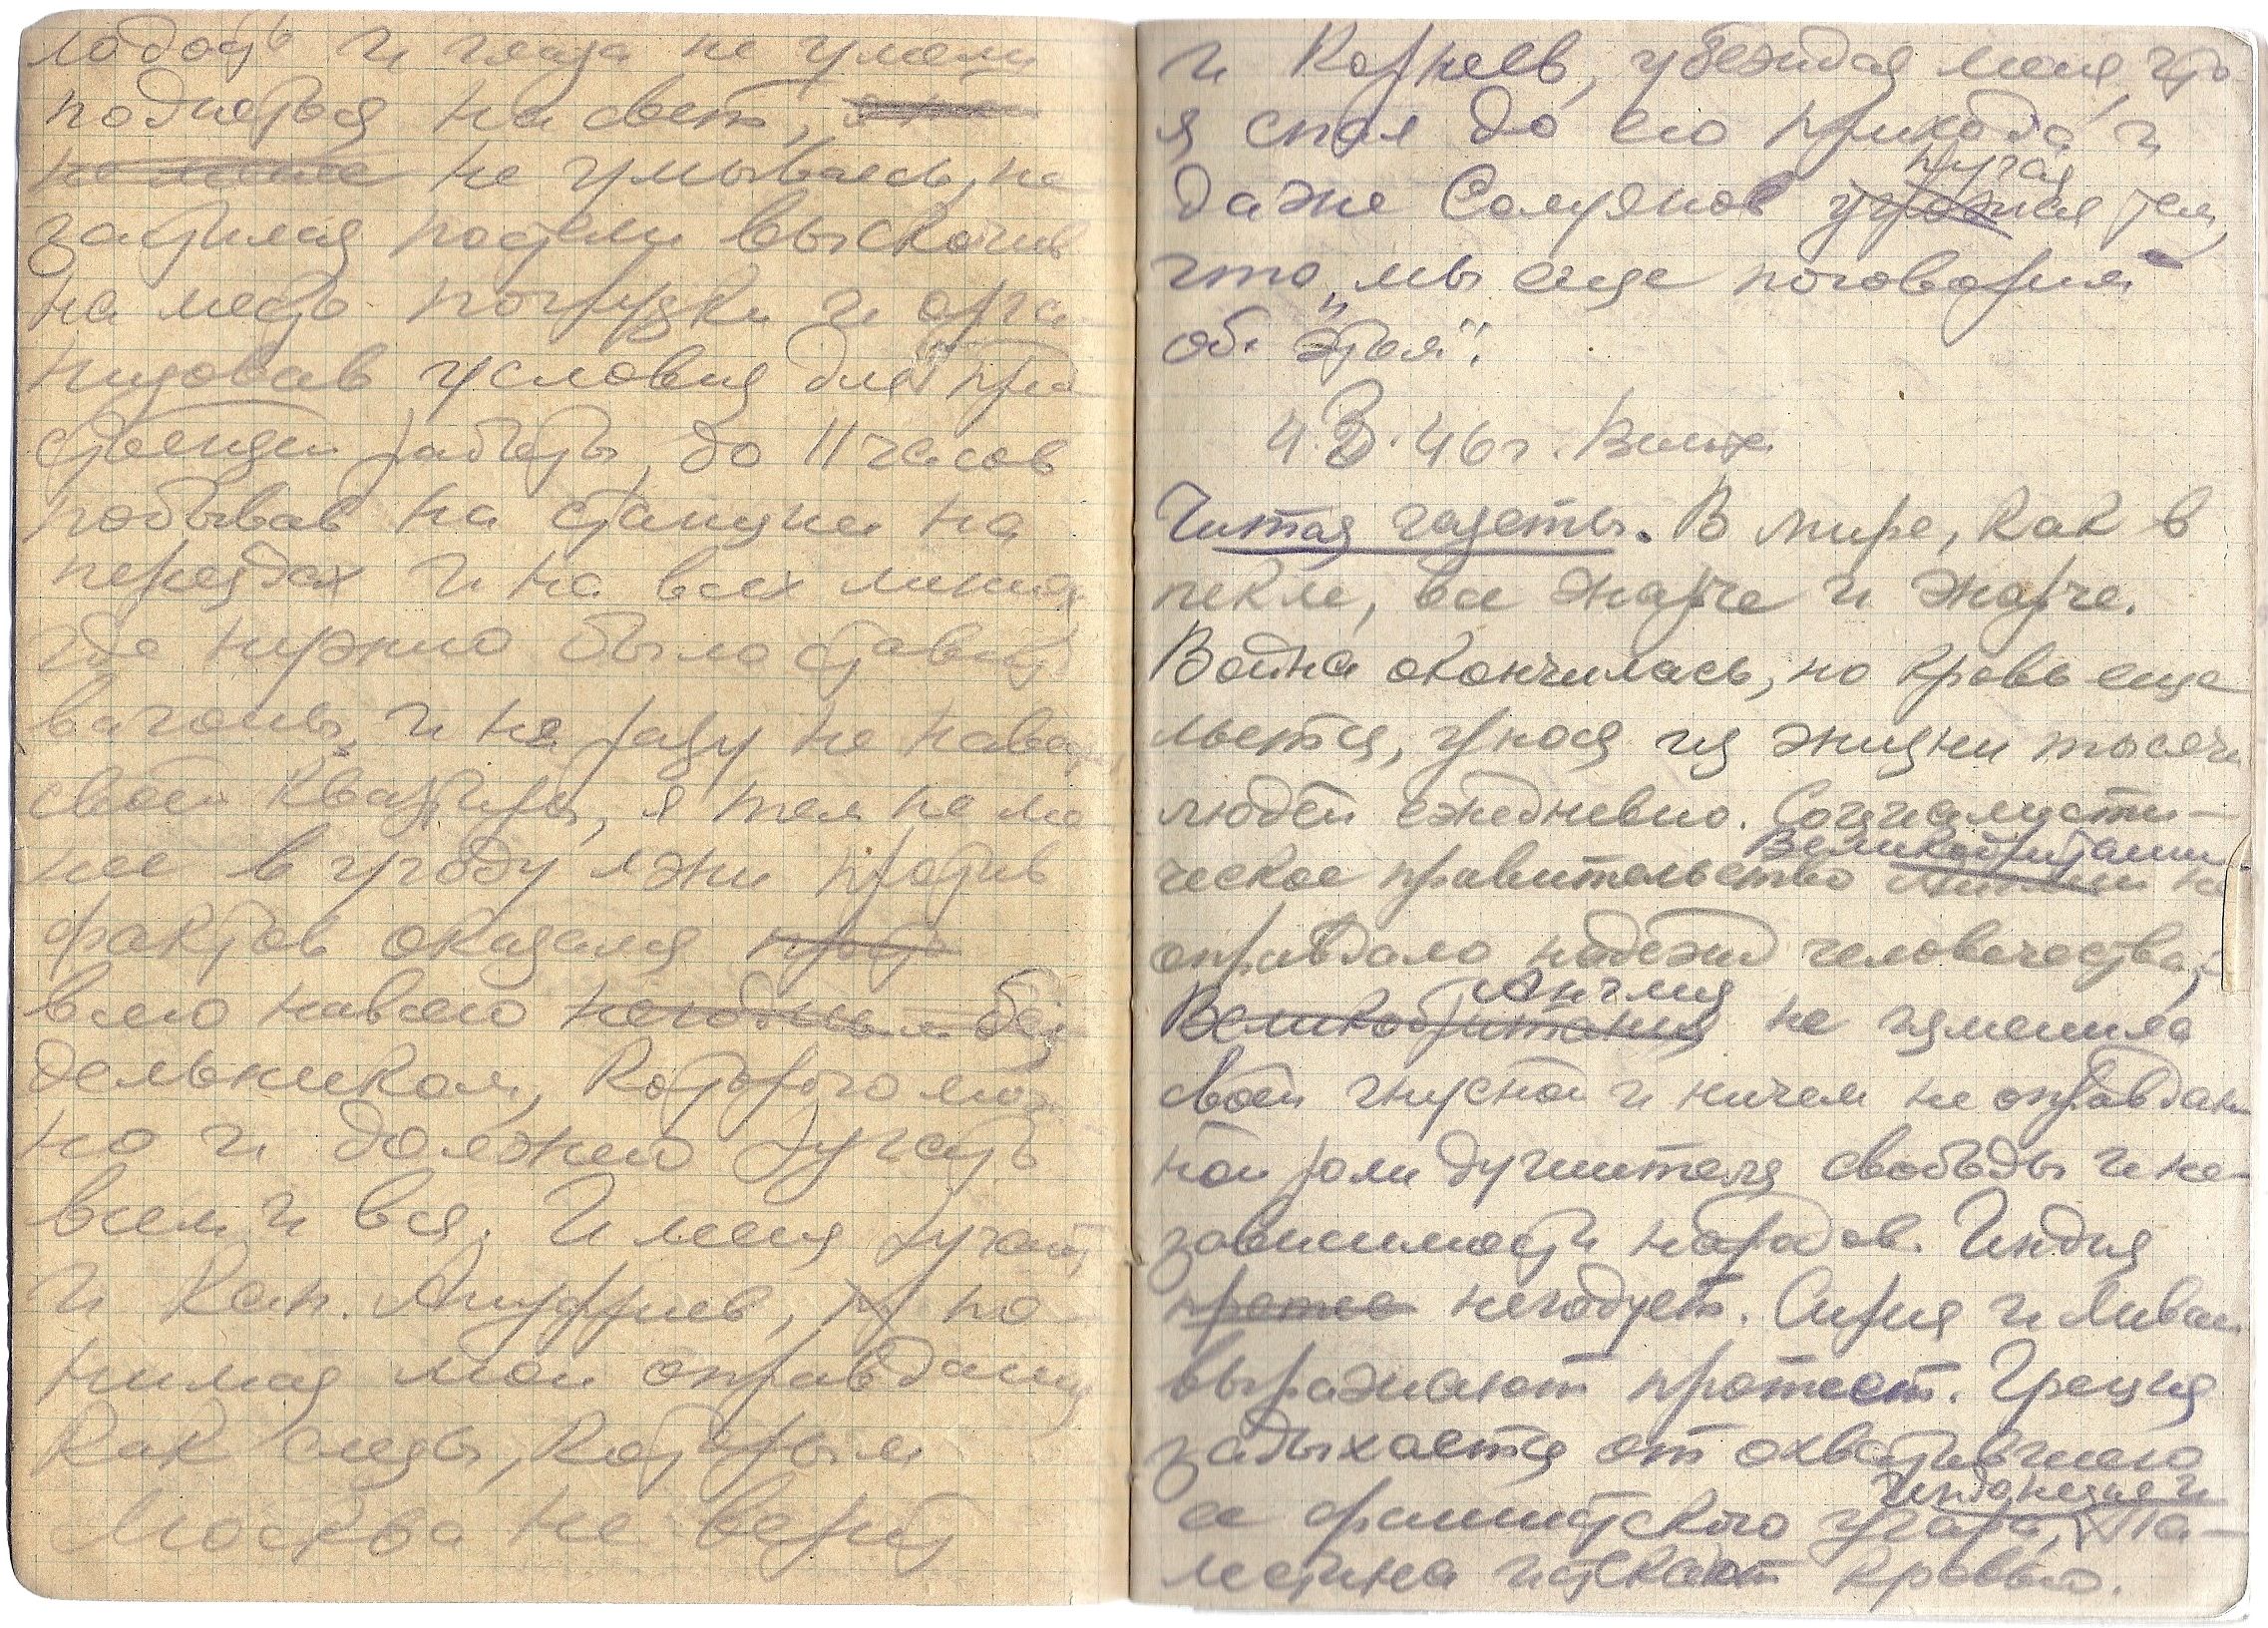 лодось и глаза не умели
подняться на свет,
не умываясь, не
застилая постели выскочив
на место погрузки и орга
низовав условия для пред
стоящей работы, до 11 часов
побывав на станции на
переездах и на всех линиях
где нужно было ставить
вагоны, и ни разу не навестив
своей квартиры, я тем не ме
нее в угоду лжи против
фактов оказался
всего навсего негодным без
дельником, которого мож
но и должно ругать
всем и вся. И меня ругает
и Кап. Ануфриев, по
нимая мои оправдания
как слезы, которым
Москва не верит
и Корнеев, убеждая меня, что
я спал до его прихода и
пугая
даже Солуянов угрожая тем,
что „мы еще поговорим
об этом".
4.3.46г. Вольх
Читая газеты. В мире, как в
пекле, все жарче и жарче.
Война окончилась, но кровь еще
льется, унося из жизни тысячи
людей ежедневно. Социалисти-
Великобритании
ческое правительство Англии не
оправдало надежд человечества,
Англия
Великобритания не изменила
своей гнусной и ничем не оправдан
ной роли душителя свободы и не-
зависимости народов. Индия
негодует. Сирия и Ливан
выражают протест. Греция
задыхается от охватившего
Индонезия и
ее фашистского угара, Па-
лестина истекают кровью.